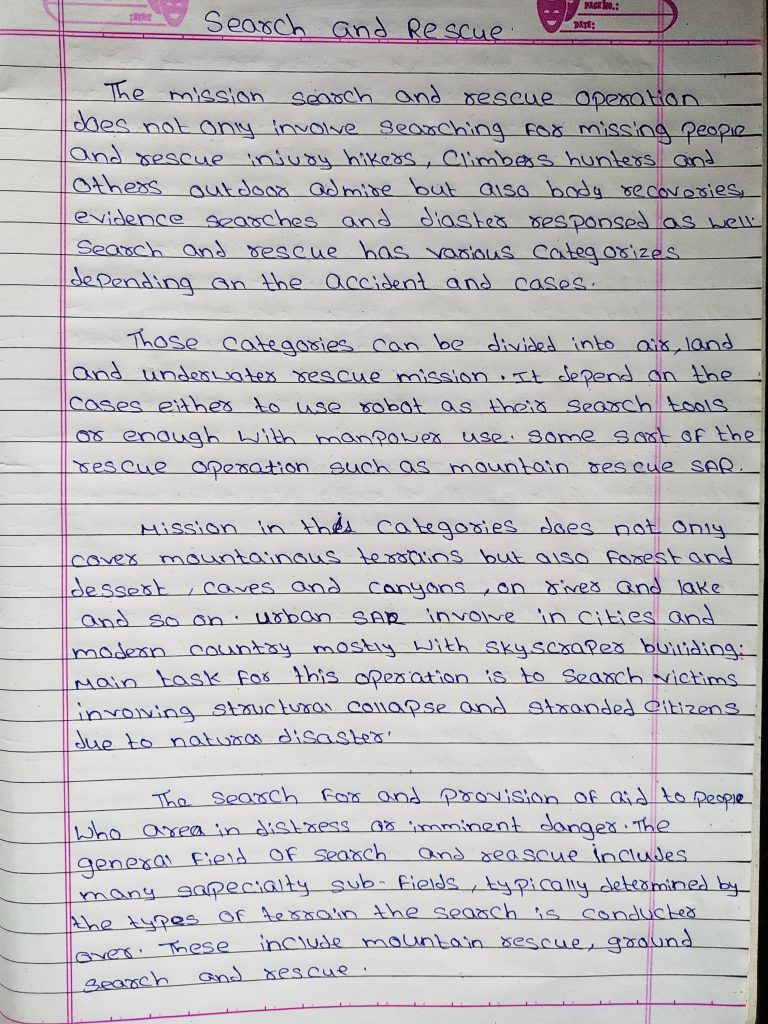 PAGE NO.:
DATE:
Search and Rescue.
The mission search and rescue operation
does not only involve searching for missing people
and rescue injury hikers, climbers hunters and
others outdoor admire but also body recoveries,
evidence searches and diaster responsed as well.
Search and rescue has various categorizes
depending on the accident and cases.
Those categories can be divided into air, land
and underwater rescue mission. It depend on the
cases either to use robot as their search tools
or enough with manpower use. Some sort of the
rescue operation such as mountain rescue SAR.
Mission in this categories does not only
cover mountainous terrains but also forest and
dessert, caves and canyons, on river and lake
and so on. Urban SAR involve in cities and
modern country mostly with skyscraper builiding.
Main task for this operation is to search victims
involving structural collapse and stranded citizens
due to natural disaster.
The search for and provision of aid to people
who area in distress or imminent danger. The
general field of search and reascue includes
many sapecialty sub-fields, typically determined by
the types of terrain the search is conducter
over. These include mountain rescue, ground
search and rescue.